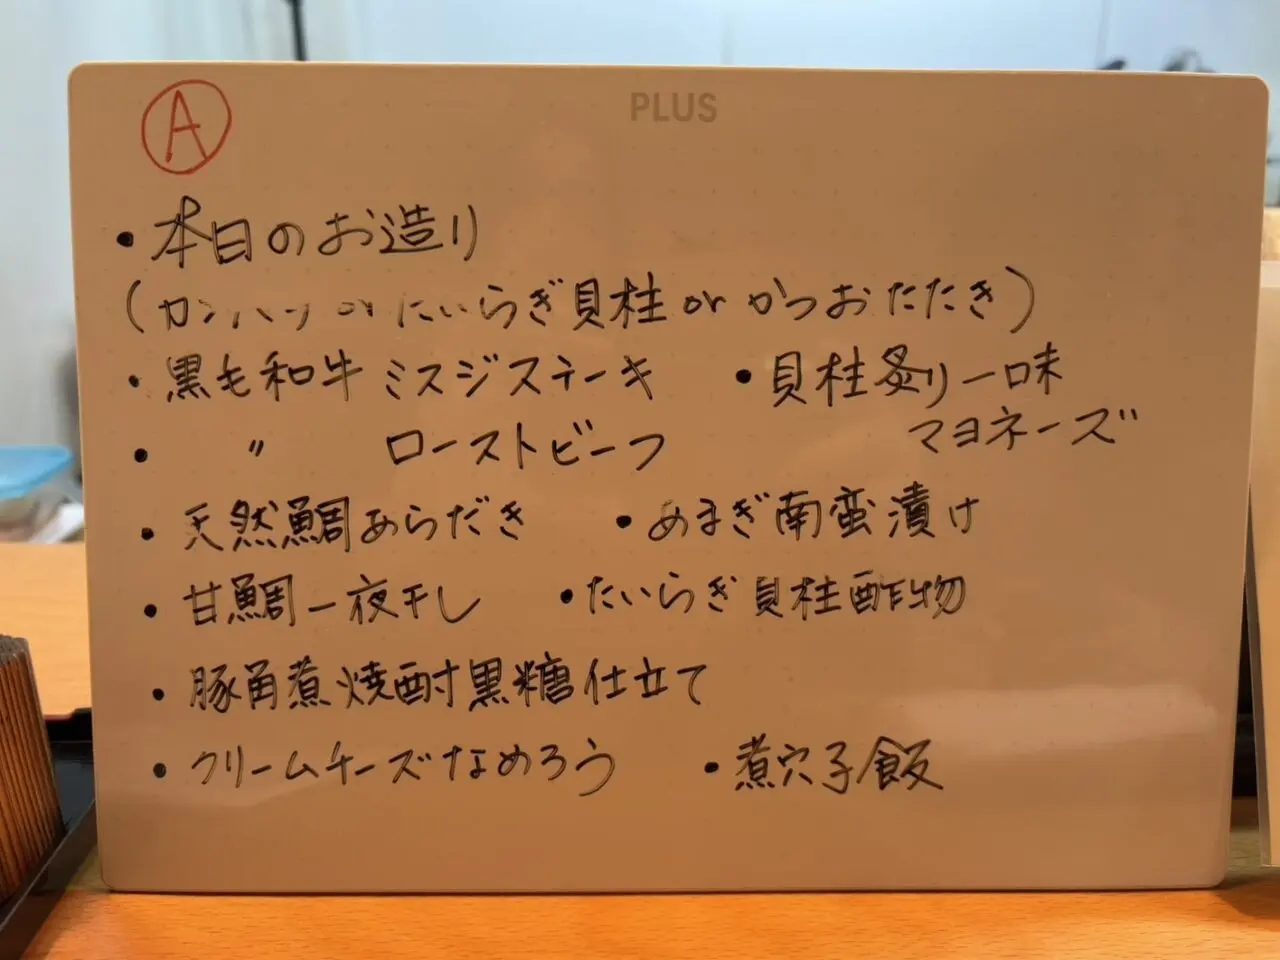 PLUS
A
・本日のお造り
(カンパチ or たいらぎ貝柱 or かつおたたき)
・黒毛和牛 ミスジステーキ
・貝柱炙り一味
マヨネーズ
・ 〃 ローストビーフ
・天然鯛あらだき
・めまぎ南蛮漬け
・甘鯛一夜干し
・たいらぎ貝柱酢物
・豚角煮焼酎黒糖仕立て
・クリームチーズなめろう
・煮穴子飯